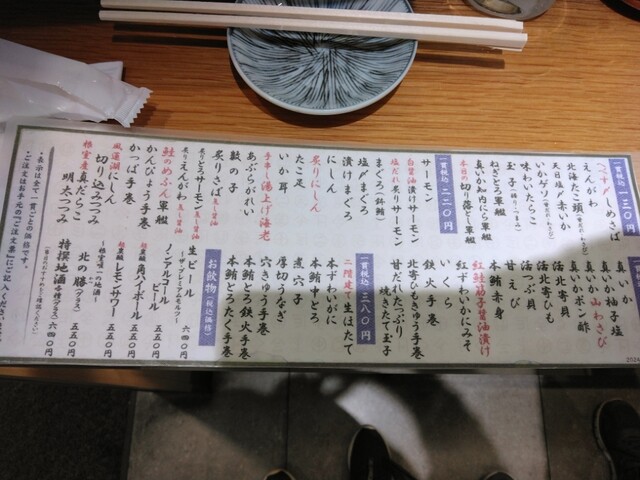 一貫税込 一三〇円
〆しめさば
えんがわ
北海たこ頭
天日塩〆赤いか
いかゲソ
味わいたらこ
玉子
ねぎとろ軍艦
真いか知内にら軍艦
本日の切り落とし軍艦
真いか
真いか柚子塩
真いか山わさび
真いかポン酢
活北寄貝
活北寄ひも
活つぶ貝
甘えび
本鮪赤身
一貫税込 二二〇円
サーモン
白醤油漬けサーモン
塩だれ炙りサーモン
まぐろ
塩〆まぐろ
漬けまぐろ
にしん
炙りにしん
たこ足
いか耳
手串し湯上げ海老
あぶらがれい
数の子
炙りさば
炙りとろサーモン
炙りえんがわ
鮭のめふん軍艦
かんぴょう手巻
かっぱ手巻
風蓮湖にしん
切り込みつつみ
根室産真だらこ
明太つつみ
紅鮭筋子醤油漬け
紅ずわいかにみそ
いくら
鉄火手巻
北寄ひもきゅうり手巻
甘だれたっぷり
焼きたて玉子
一貫税込 三八〇円
二階建て生ほたて
本ずわいがに
本鮪中とろ
煮穴子
厚切りうなぎ
穴きゅう手巻
本鮪とろ鉄火手巻
本鮪とろたく手巻
お飲物（税込価格）
生ビール
〜ザ・プレミアムモルツ〜
六四〇円
ノンアルコールビール
五五〇円
角ハイボール
五五〇円
レモンサワー
五五〇円
〜根室唯一の地酒〜
北の勝（グラス）
五五〇円
特撰地酒（一合グラス）
六四〇円
・表示は全て一貫ごとの価格です。
・ご注文はお手元の「ご注文票」にご記入ください